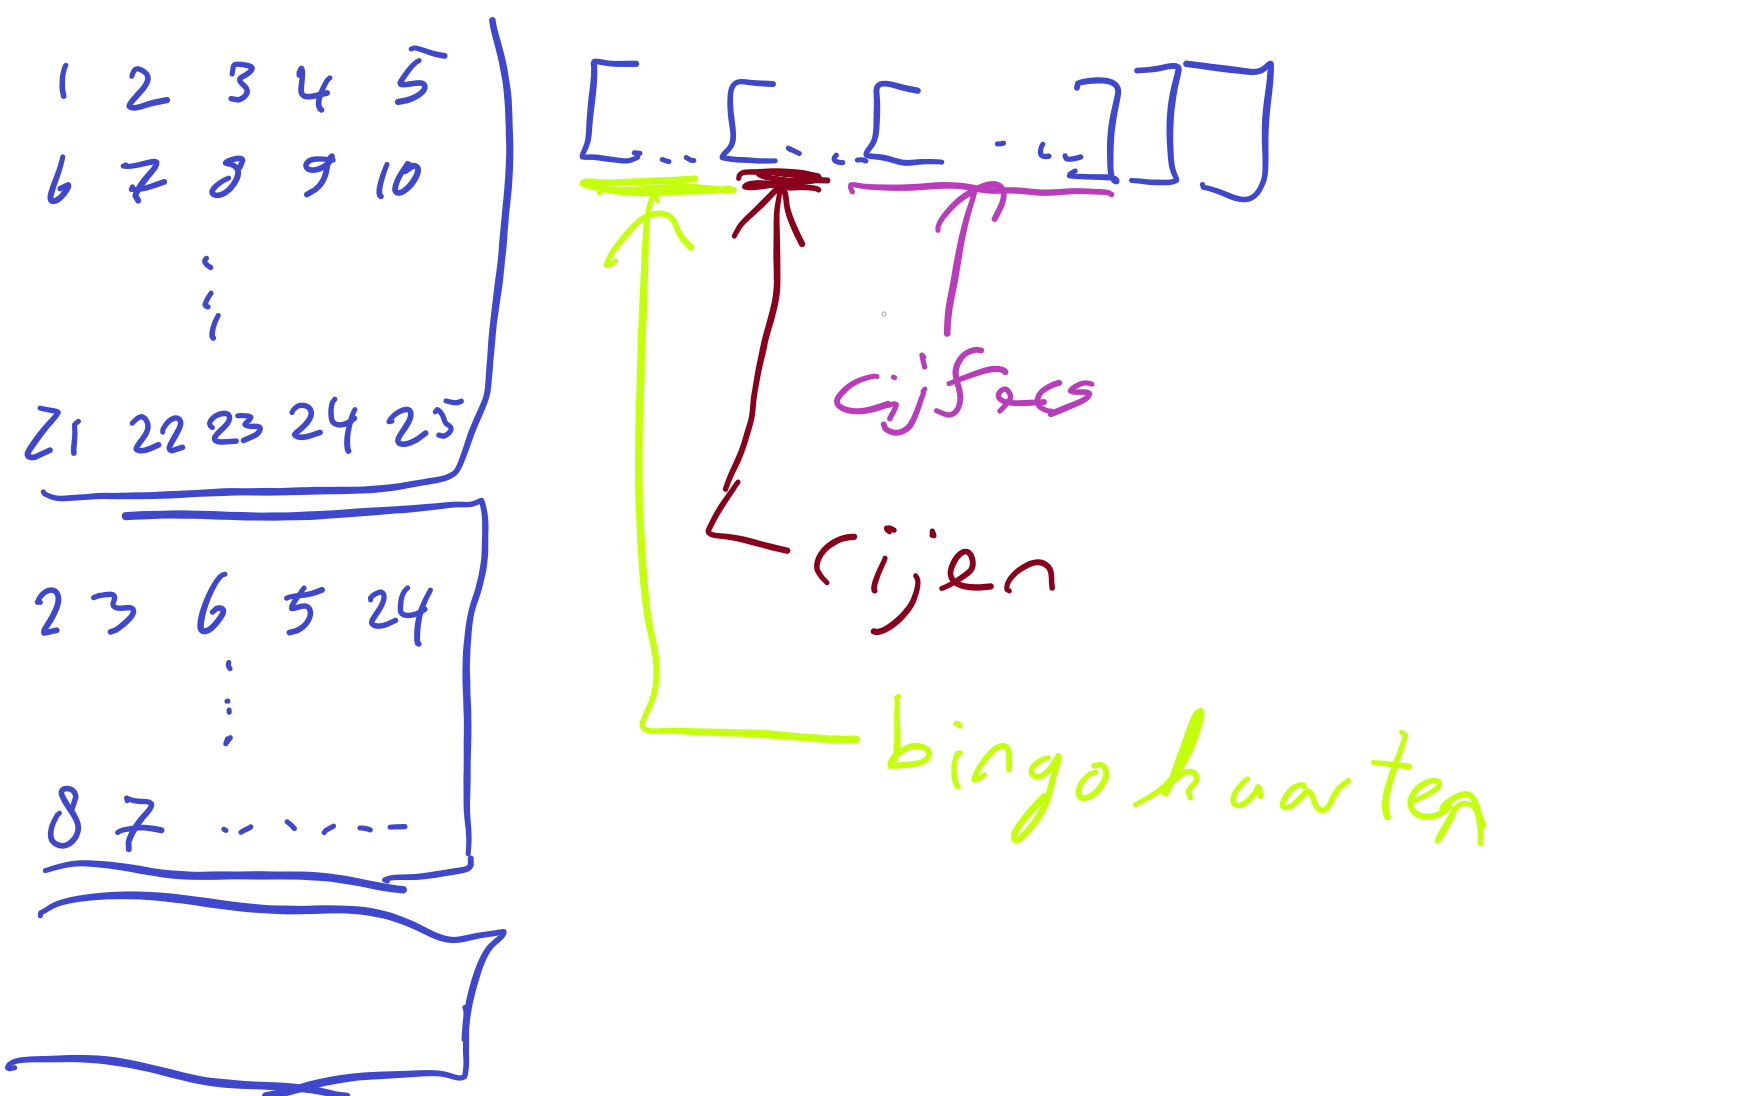 1 2 3 4 5
6 7 8 9 10
⋮
21 22 23 24 25
2 3 6 5 24
⋮
8 7 ......
[... [... [ ... ] ] ]
cijfers
rijen
bingokaarten